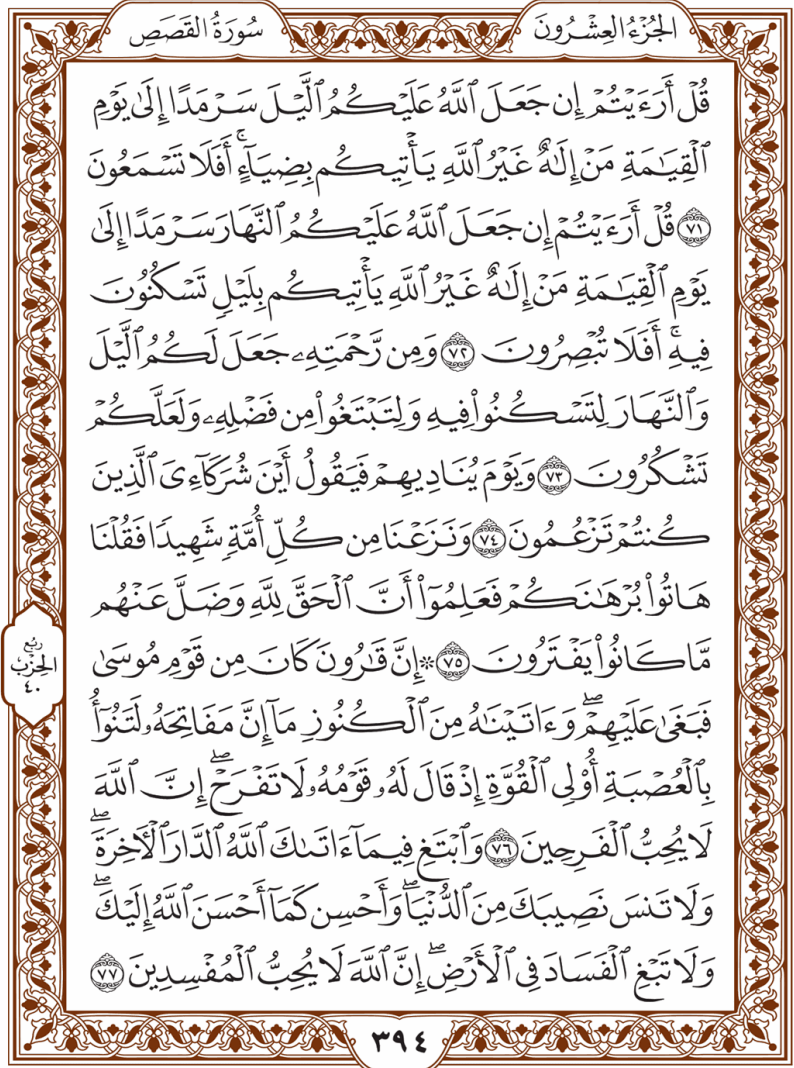 الجُزْءُ العِشْرُونَ
سُورَةُ القَصَصِ
قُلْ أَرَءَيْتُمْ إِن جَعَلَ ٱللَّهُ عَلَيْكُمُ ٱلَّيْلَ سَرْمَدًا إِلَىٰ يَوْمِ
ٱلْقِيَٰمَةِ مَنْ إِلَٰهٌ غَيْرُ ٱللَّهِ يَأْتِيكُم بِضِيَآءٍ ۚ أَفَلَا تَسْمَعُونَ
٧١ قُلْ أَرَءَيْتُمْ إِن جَعَلَ ٱللَّهُ عَلَيْكُمُ ٱلنَّهَارَ سَرْمَدًا إِلَىٰ
يَوْمِ ٱلْقِيَٰمَةِ مَنْ إِلَٰهٌ غَيْرُ ٱللَّهِ يَأْتِيكُم بِلَيْلٍ تَسْكُنُونَ
فِيهِ ۚ أَفَلَا تُبْصِرُونَ ٧٢ وَمِن رَّحْمَتِهِۦ جَعَلَ لَكُمُ ٱلَّيْلَ
وَٱلنَّهَارَ لِتَسْكُنُوا۟ فِيهِ وَلِتَبْتَغُوا۟ مِن فَضْلِهِۦ وَلَعَلَّكُمْ
تَشْكُرُونَ ٧٣ وَيَوْمَ يُنَادِيهِمْ فَيَقُولُ أَيْنَ شُرَكَآءِىَ ٱلَّذِينَ
كُنتُمْ تَزْعُمُونَ ٧٤ وَنَزَعْنَا مِن كُلِّ أُمَّةٍ شَهِيدًا فَقُلْنَا
هَاتُوا۟ بُرْهَٰنَكُمْ فَعَلِمُوٓا۟ أَنَّ ٱلْحَقَّ لِلَّهِ وَضَلَّ عَنْهُم
مَّا كَانُوا۟ يَفْتَرُونَ ٧٥ ۞ إِنَّ قَٰرُونَ كَانَ مِن قَوْمِ مُوسَىٰ
فَبَغَىٰ عَلَيْهِمْ ۖ وَءَاتَيْنَٰهُ مِنَ ٱلْكُنُوزِ مَآ إِنَّ مَفَاتِحَهُۥ لَتَنُوٓأُ
بِٱلْعُصْبَةِ أُو۟لِى ٱلْقُوَّةِ إِذْ قَالَ لَهُۥ قَوْمُهُۥ لَا تَفْرَحْ ۖ إِنَّ ٱللَّهَ
لَا يُحِبُّ ٱلْفَرِحِينَ ٧٦ وَٱبْتَغِ فِيمَآ ءَاتَىٰكَ ٱللَّهُ ٱلدَّارَ ٱلْءَاخِرَةَ ۖ
وَلَا تَنسَ نَصِيبَكَ مِنَ ٱلدُّنْيَا ۖ وَأَحْسِن كَمَآ أَحْسَنَ ٱللَّهُ إِلَيْكَ ۖ
وَلَا تَبْغِ ٱلْفَسَادَ فِى ٱلْأَرْضِ ۖ إِنَّ ٱللَّهَ لَا يُحِبُّ ٱلْمُفْسِدِينَ ٧٧
رُبُع
الحِزْب
٤٠
٣٩٤